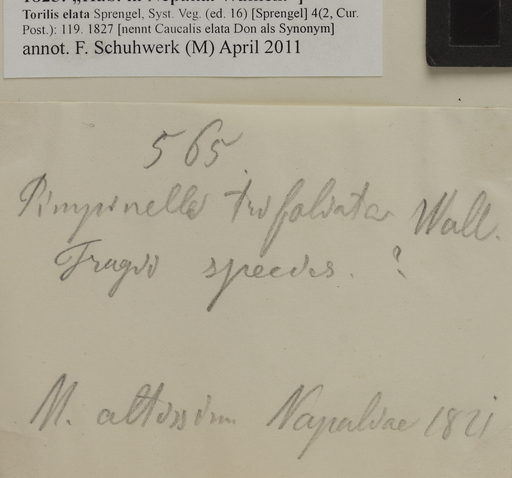 Torilis elata Sprengel, Syst. Veg. (ed. 16) [Sprengel] 4(2, Cur.
Post.): 119. 1827 [nennt Caucalis elata Don als Synonym]
annot. F. Schuhwerk (M) April 2011
565
Pimpinella trifoliata Wall.
Fragii species. ?
M. altissim Napaliae 1821